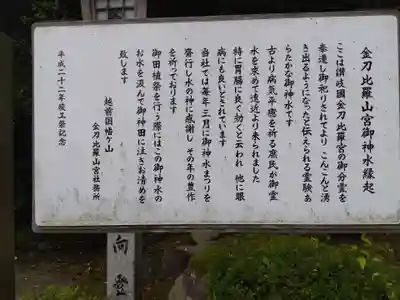 金刀比羅山宮御神水縁起
ここは讃岐國金刀比羅宮の御分霊を
奉遷し御祀りされてより こんこんと湧
き出るようになったと伝えられる霊験あ
らたかな御神水です
古より病気平癒を祈る庶民が御霊
水を求めて遠近より来られました
特に胃腸に良く効くと云われ 他に眼
病にも良いとされています
当社では毎年三月に御神水まつりを
斎行し水の神に感謝し その年の豊作
を祈っております
御田植祭を行う際にはこの御神水の
お水を汲んで御神田に注ぎお清めを
致します
越前国幡ケ山
金刀比羅山宮社務所
平成二十二年竣工祭記念
向
登